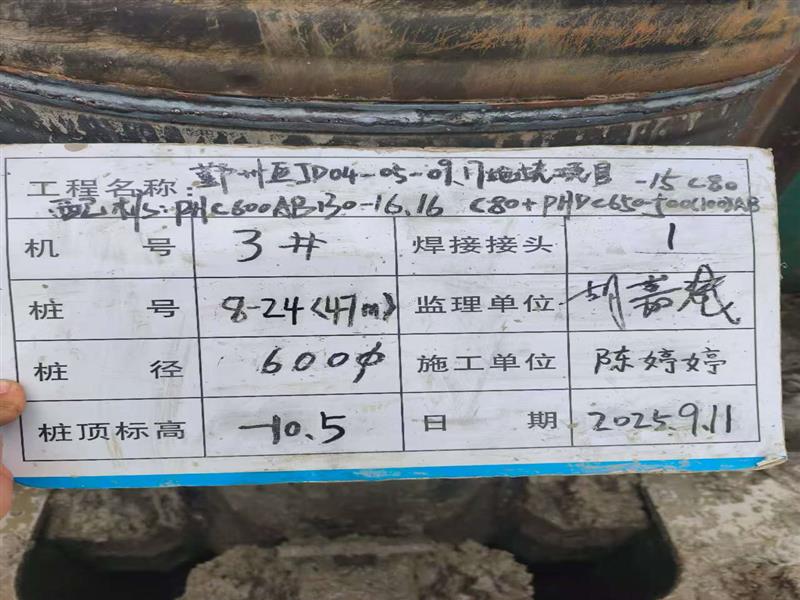 工程名称：鄞州区JD04-05-09.17地块项目
配桩：PHC600AB130-16.16 C80+PHDC650-500(100)AB -15 C80
机号 3# 焊接接头 1
桩号 8-24(47m) 监理单位 胡嘉
桩径 600φ 施工单位 陈婷婷
桩顶标高 -10.5 日期 2025.9.11